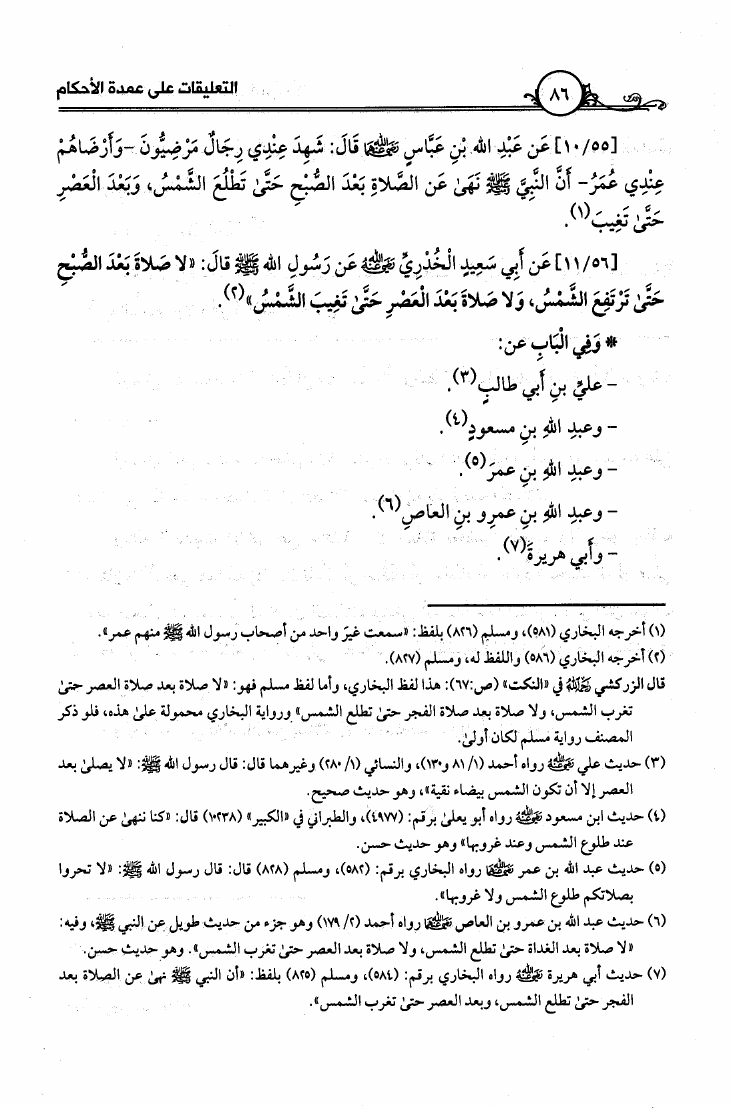 التعليقات على عمدة الأحكام
٨٦
[١٠/٥٥] عَن عَبْدِ الله بْنِ عَبَّاسٍ ﵄ قَالَ: شَهِدَ عِنْدِي رِجَالٌ مَرْضِيُّونَ -وَأَرْضَاهُمْ
عِنْدِي عُمَرُ- أَنَّ النَّبِيَّ ﷺ نَهَىٰ عَن الصَّلاةِ بَعْدَ الصُّبْحِ حَتَّىٰ تَطْلُعَ الشَّمْسُ، وَبَعْدَ الْعَصْرِ
حَتَّىٰ تَغِيبَ(١).
[١١/٥٦] عَن أَبِي سَعِيدٍ الْخُدْرِيِّ ﵁ عَن رَسُولِ الله ﷺ قالَ: «لا صَلاةَ بَعْدَ الصُّبْحِ
حَتَّىٰ تَرْتَفِعَ الشَّمْسُ، وَلا صَلاةَ بَعْدَ الْعَصْرِ حَتَّىٰ تَغِيبَ الشَّمْسُ»(٢).
* وَفِي الْبَابِ عن:
- عليِّ بنِ أَبي طالبٍ(٣).
- وعبدِ اللهِ بنِ مسعودٍ(٤).
- وعبدِ اللهِ بنِ عمرَ(٥).
- وعبدِ اللهِ بنِ عمرِو بنِ العاصِ(٦).
- وأَبي هريرةَ(٧).
(١) أخرجه البخاري (٥٨١)، ومسلم (٨٢٦) بلفظ: «سمعت غيرَ واحد من أصحاب رسول الله ﷺ منهم عمر».
(٢) أخرجه البخاري (٥٨٦) واللفظ له، ومسلم (٨٢٧).
قال الزركشي ﵀ في «النكت» (ص:٦٧): هذا لفظ البخاري، وأما لفظ مسلم فهو: «لا صلاة بعد صلاة العصر حتىٰ
تغرب الشمس، ولا صلاة بعد صلاة الفجر حتىٰ تطلع الشمس» ورواية البخاري محمولة علىٰ هذه، فلو ذكر
المصنف رواية مسلم لكان أولىٰ.
(٣) حديث علي ﵁ رواه أحمد (١/ ٨١ و١٣٠)، والنسائي (١/ ٢٨٠) وغيرهما قال: قال رسول الله ﷺ: «لا يصلىٰ بعد
العصر إلا أن تكون الشمس بيضاء نقية»، وهو حديث صحيح.
(٤) حديث ابن مسعود ﵁ رواه أبو يعلىٰ برقم: (٤٩٧٧)، والطبراني في «الكبير» (١٠٢٣٨) قال: «كنا ننهىٰ عن الصلاة
عند طلوع الشمس وعند غروبها» وهو حديث حسن.
(٥) حديث عبد الله بن عمر ﵄ رواه البخاري برقم: (٥٨٢)، ومسلم (٨٢٨) قال: قال رسول الله ﷺ: «لا تحروا
بصلاتكم طلوع الشمس ولا غروبها».
(٦) حديث عبد الله بن عمرو بن العاص ﵄ رواه أحمد (٢/ ١٧٩) وهو جزء من حديث طويل عن النبي ﷺ، وفيه:
«لا صلاة بعد الغداة حتىٰ تطلع الشمس، ولا صلاة بعد العصر حتىٰ تغرب الشمس». وهو حديث حسن.
(٧) حديث أبي هريرة ﵁ رواه البخاري برقم: (٥٨٤)، ومسلم (٨٢٥) بلفظ: «أن النبي ﷺ نهىٰ عن الصلاة بعد
الفجر حتىٰ تطلع الشمس، وبعد العصر حتىٰ تغرب الشمس».